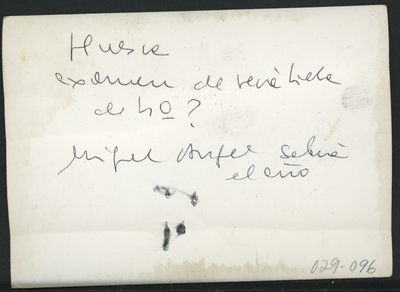 Huesca
examen de reválida
de 4º?
Miguel Angel sabrá
el año
029-096